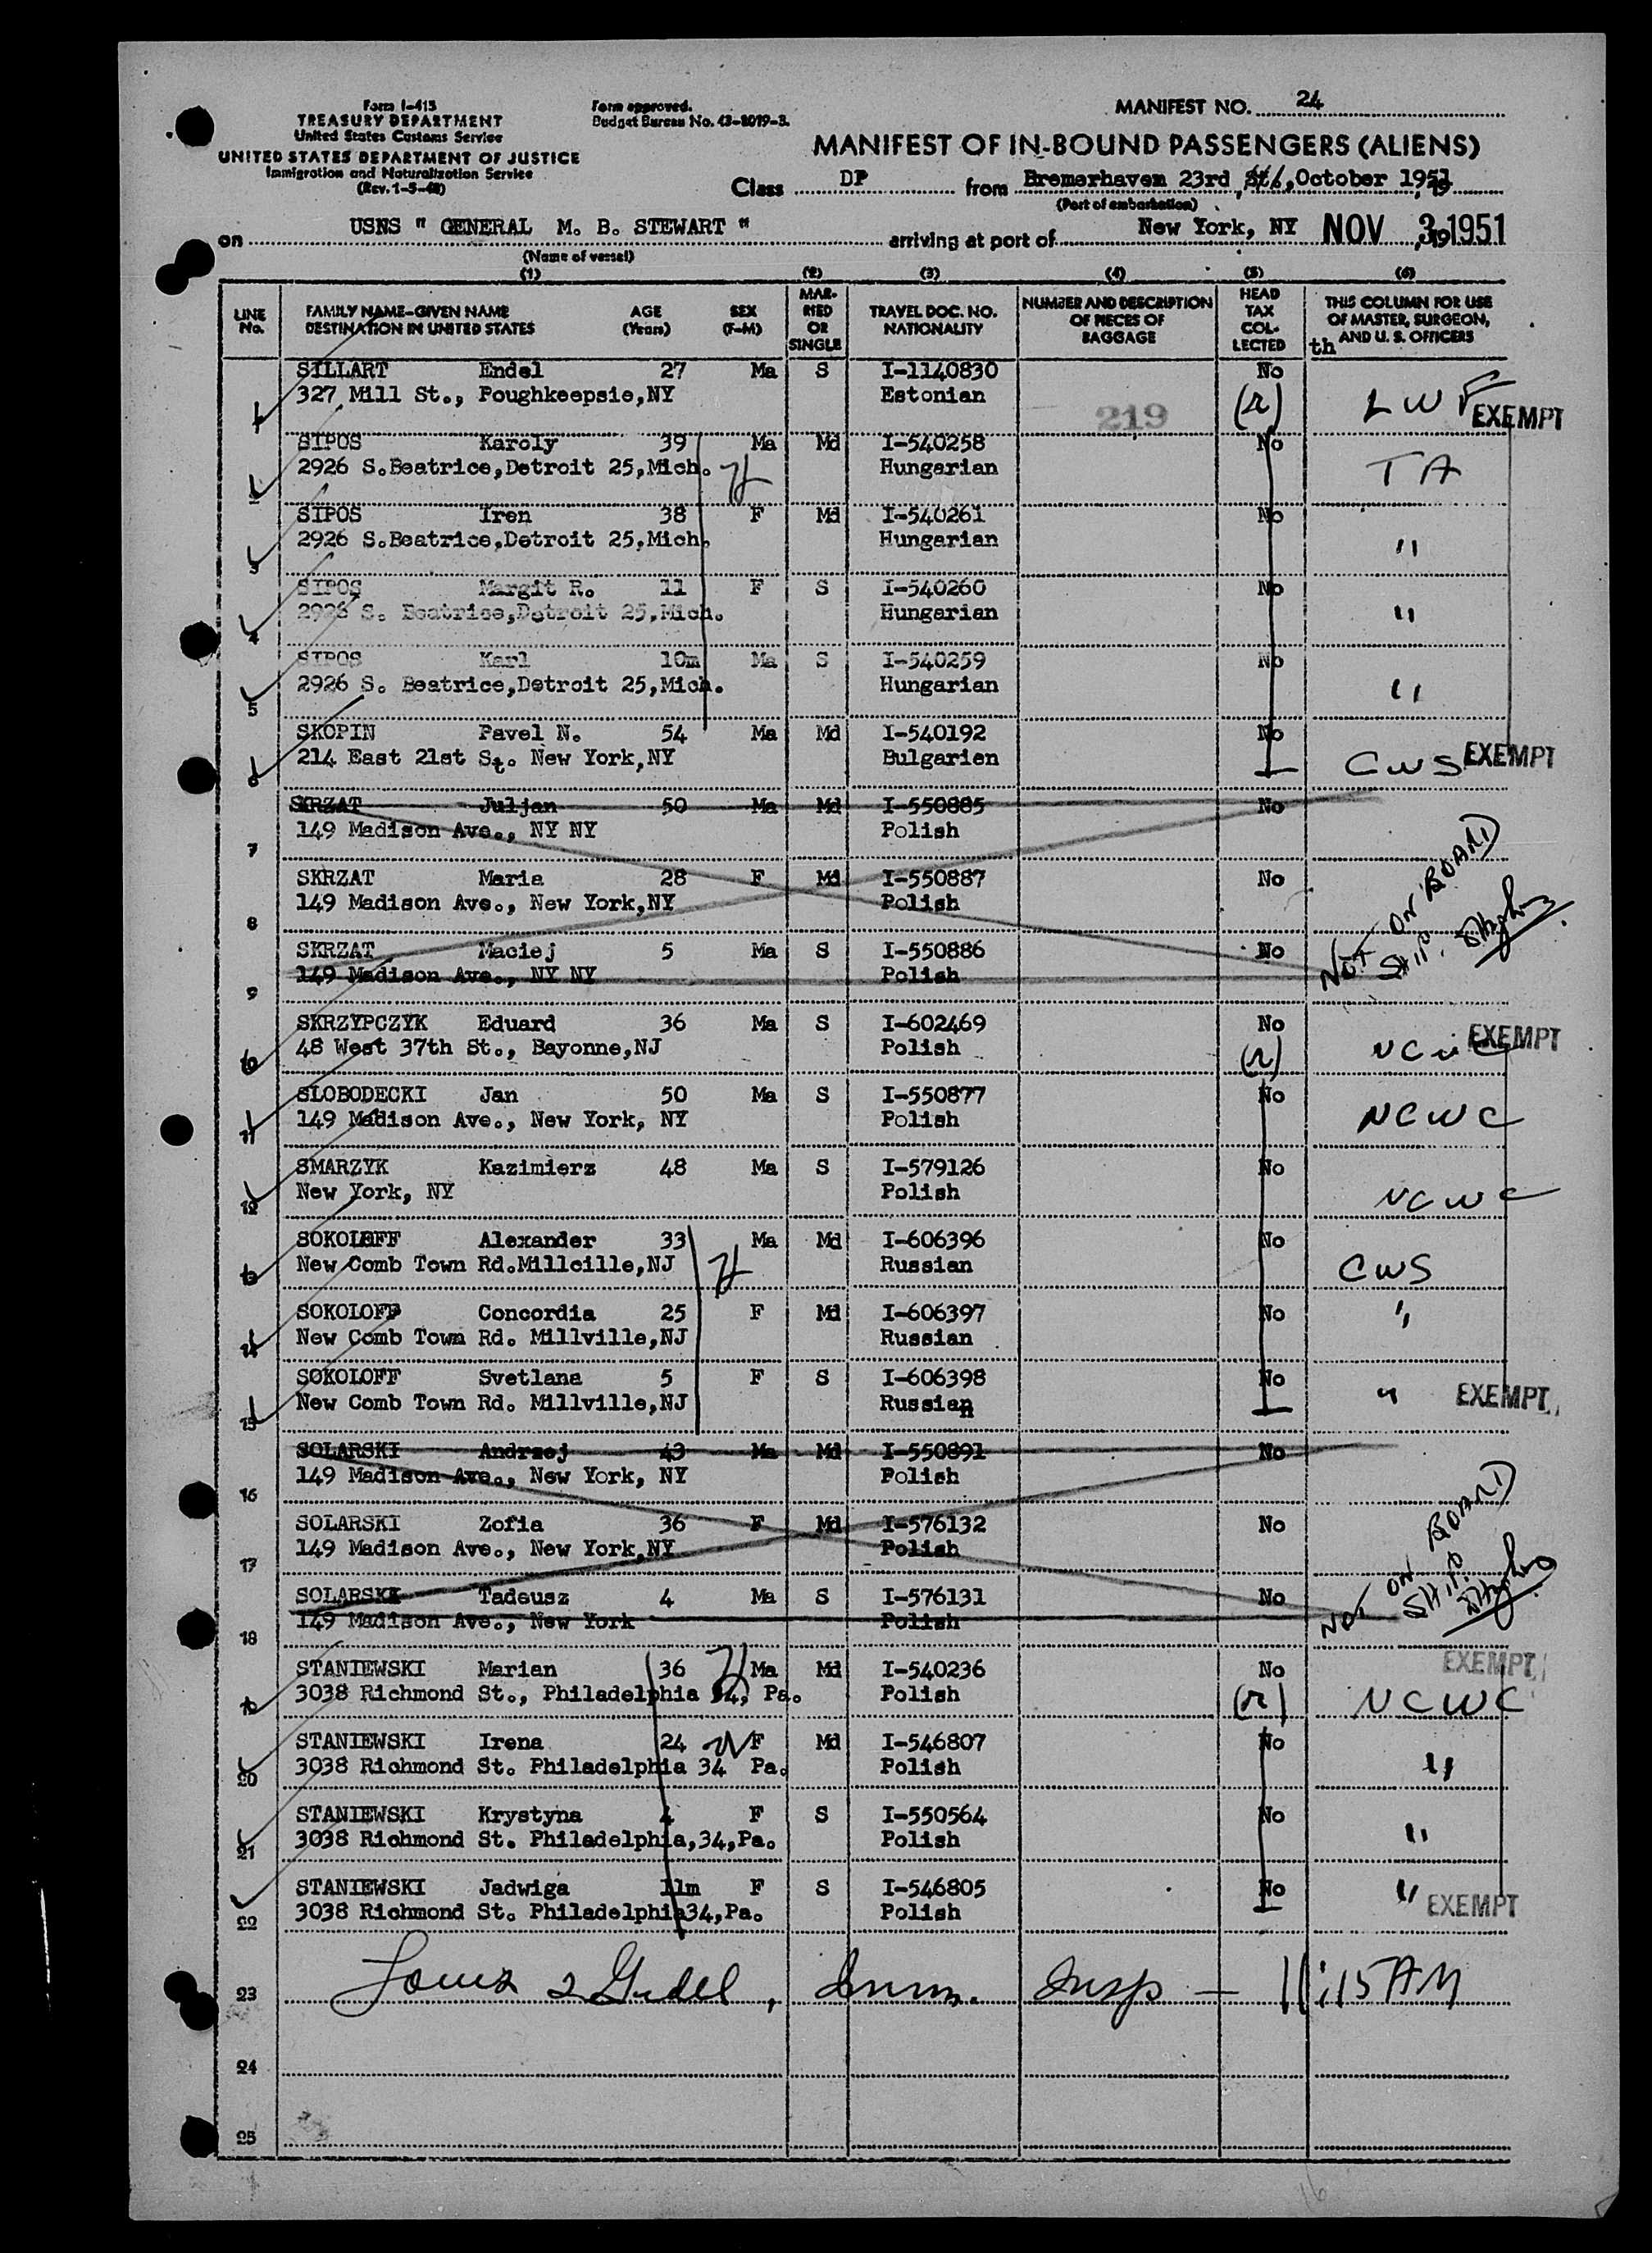 Form I-415
TREASURY DEPARTMENT
United States Customs Service
UNITED STATES DEPARTMENT OF JUSTICE
Immigration and Naturalization Service
(Rev. 1-5-48)
Form approved.
Budget Bureau No. 43-R019-3.
MANIFEST NO. 24
MANIFEST OF IN-BOUND PASSENGERS (ALIENS)
Class DP from Bremerhaven 23rd October 1951
(Port of embarkation)
on USNS " GENERAL M. B. STEWART " arriving at port of New York, NY NOV 3 1951
(Name of vessel)
(1) (2) (3) (4) (5) (6)
LINE No. FAMILY NAME-GIVEN NAME DESTINATION IN UNITED STATES AGE (Years) SEX (F-M) MARRIED OR SINGLE TRAVEL DOC. NO. NATIONALITY NUMBER AND DESCRIPTION OF PIECES OF BAGGAGE HEAD TAX COLLECTED THIS COLUMN FOR USE OF MASTER, SURGEON, AND U. S. OFFICERS
th
SILLART Endel 27 Ma S I-1140830 No
327 Mill St., Poughkeepsie,NY Estonian 219 (r) LWF EXEMPT
SIPOS Karoly 39 Ma Md I-540258 No
2926 S.Beatrice,Detroit 25,Mich. Hungarian TA
SIPOS Iren 38 F Md I-540261 No
3 2926 S.Beatrice,Detroit 25,Mich. Hungarian "
SIPOS Margit R. 11 F S I-540260 No
4 2926 S. Beatrice,Detroit 25,Mich. Hungarian "
SIPOS Karl 10m Ma S I-540259 No
5 2926 S. Beatrice,Detroit 25,Mich. Hungarian "
SKOPIN Pavel N. 54 Ma Md I-540192 No
6 214 East 21st St. New York,NY Bulgarien CWS EXEMPT
SKRZAT Juljan 50 Ma Md I-550885 No
7 149 Madison Ave., NY NY Polish
SKRZAT Maria 28 F Md I-550887 No
8 149 Madison Ave., New York,NY Polish NOT ON BOARD SHIP.
SKRZAT Maciej 5 Ma S I-550886 No
9 149 Madison Ave., NY NY Polish
SKRZYPCZYK Eduard 36 Ma S I-602469 No
10 48 West 37th St., Bayonne,NJ Polish (r) NCWC EXEMPT
SLOBODECKI Jan 50 Ma S I-550877 No
11 149 Madison Ave., New York, NY Polish NCWC
SMARZYK Kazimierz 48 Ma S I-579126 No
12 New York, NY Polish NCWC
SOKOLOFF Alexander 33 Ma Md I-606396 No
13 New Comb Town Rd.Millcille,NJ Russian CWS
SOKOLOFF Concordia 25 F Md I-606397 No
14 New Comb Town Rd. Millville,NJ Russian "
SOKOLOFF Svetlana 5 F S I-606398 No
15 New Comb Town Rd. Millville,NJ Russian " EXEMPT
SOLARSKI Andrzej 43 Ma Md I-550891 No
16 149 Madison Ave., New York, NY Polish
SOLARSKI Zofia 36 F Md I-576132 No
17 149 Madison Ave., New York,NY Polish NOT ON BOARD SHIP.
SOLARSKI Tadeusz 4 Ma S I-576131 No
18 149 Madison Ave., New York Polish
STANIEWSKI Marian 36 Ma Md I-540236 No EXEMPT
19 3038 Richmond St., Philadelphia 34, Pa. Polish (r) NCWC
STANIEWSKI Irena 24 F Md I-546807 No
20 3038 Richmond St. Philadelphia 34 Pa. Polish "
STANIEWSKI Krystyna 4 F S I-550564 No
21 3038 Richmond St. Philadelphia,34,Pa. Polish "
STANIEWSKI Jadwiga 11m F S I-546805 No
22 3038 Richmond St. Philadelphia34,Pa. Polish " EXEMPT
23 Imm. Insp — 11:15 AM
24
25
16